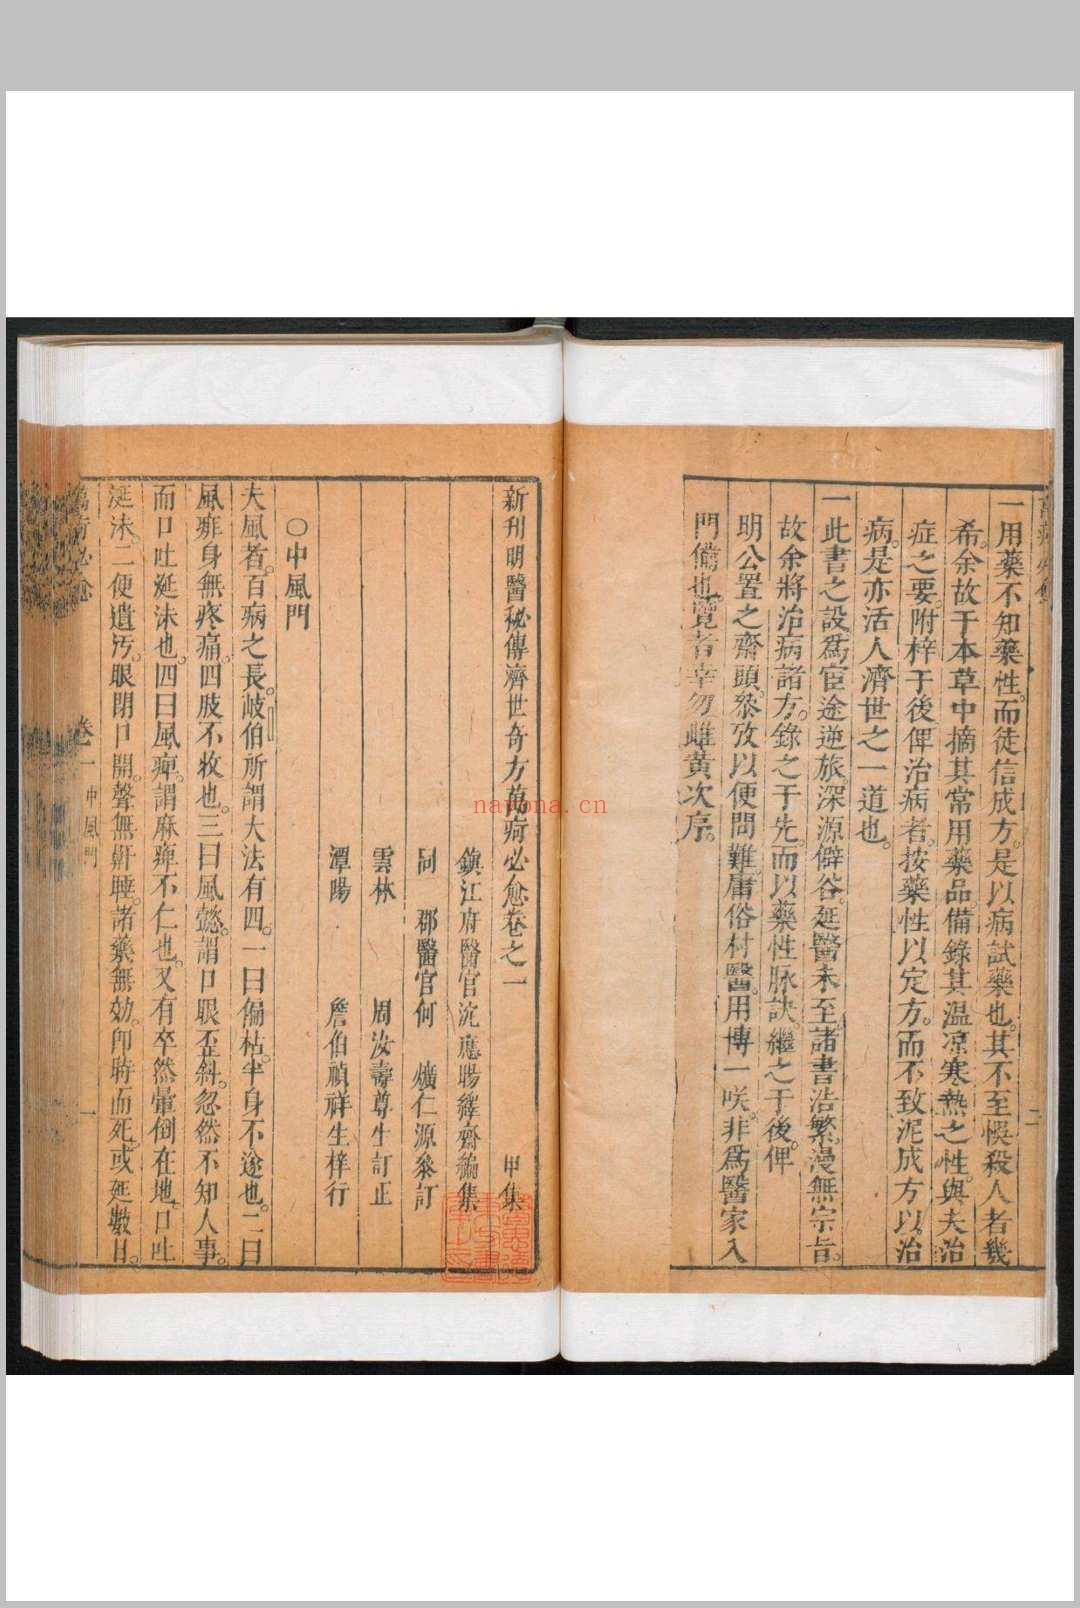 一用藥不知藥性。而徒信成方。是以病試藥也。其不至悞殺人者幾
希。余故于本草中摘其常用藥品。備錄其溫凉寒熱之性。與夫治
症之要。附梓于後。俾治病者。按藥性以定方。而不致泥成方以治
病。是亦活人濟世之一道也。
一此書之設。爲宦途逆旅。深源僻谷。延醫未至。諸書浩繁。漫無宗旨。
故余將治病諸方。錄之于先。而以藥性脉訣。繼之于後。俾
明公置之齋頭。叅攷以便問難。庸俗村醫。用博一咲。非爲醫家入
門僃也。覽者幸勿雌黃次序。
二
新刊明醫秘傳濟世奇方萬疴必愈卷之一 甲集
鎮江府醫官沈應暘繹齋編集
同 郡醫官何 爌仁源叅訂
雲林 周汝壽尊生訂正
潭陽 詹伯禎祥生梓行
○中風門
夫風者。百病之長。岐伯所謂大法有四。一曰偏枯。半身不遂也。二曰
風痱。身無疼痛。四肢不收也。三曰風懿。謂口眼歪斜。忽然不知人事。
而口吐涎沫也。四曰風痺。謂麻痺不仁也。又有卒然暈倒在地。口吐
涎沫。二便遺汚。眼閉口開。聲無鼾睡。諸藥無効。卽時而死。或延數日。
萬疴必愈 卷一 中風門 一
nayona.cn